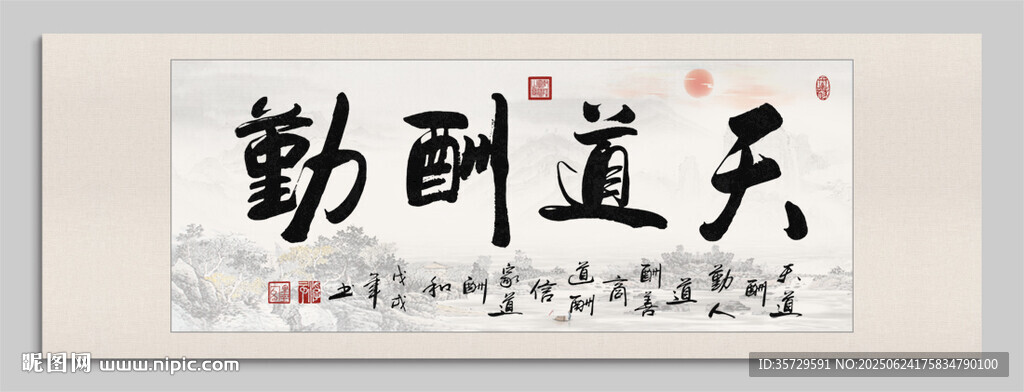 天道酬勤
天道酬勤人道酬善商道酬信家道酬和戊戌年书
昵图网 www.nipic.com
ID:35729591 NO:20250624175834790100